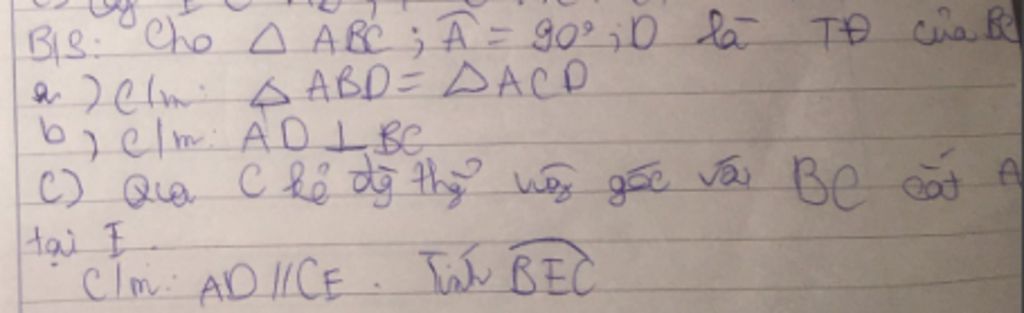 B/S: Cho △ ABC ; Â = 90° ; D là TĐ của BC
a) C/m: △ ABD = △ ACD
b) C/m: AD ⊥ BC
c) Qua C kẻ đg thg vuông góc với BC cắt A
tại E.
C/m: AD // CE. Tính BEC